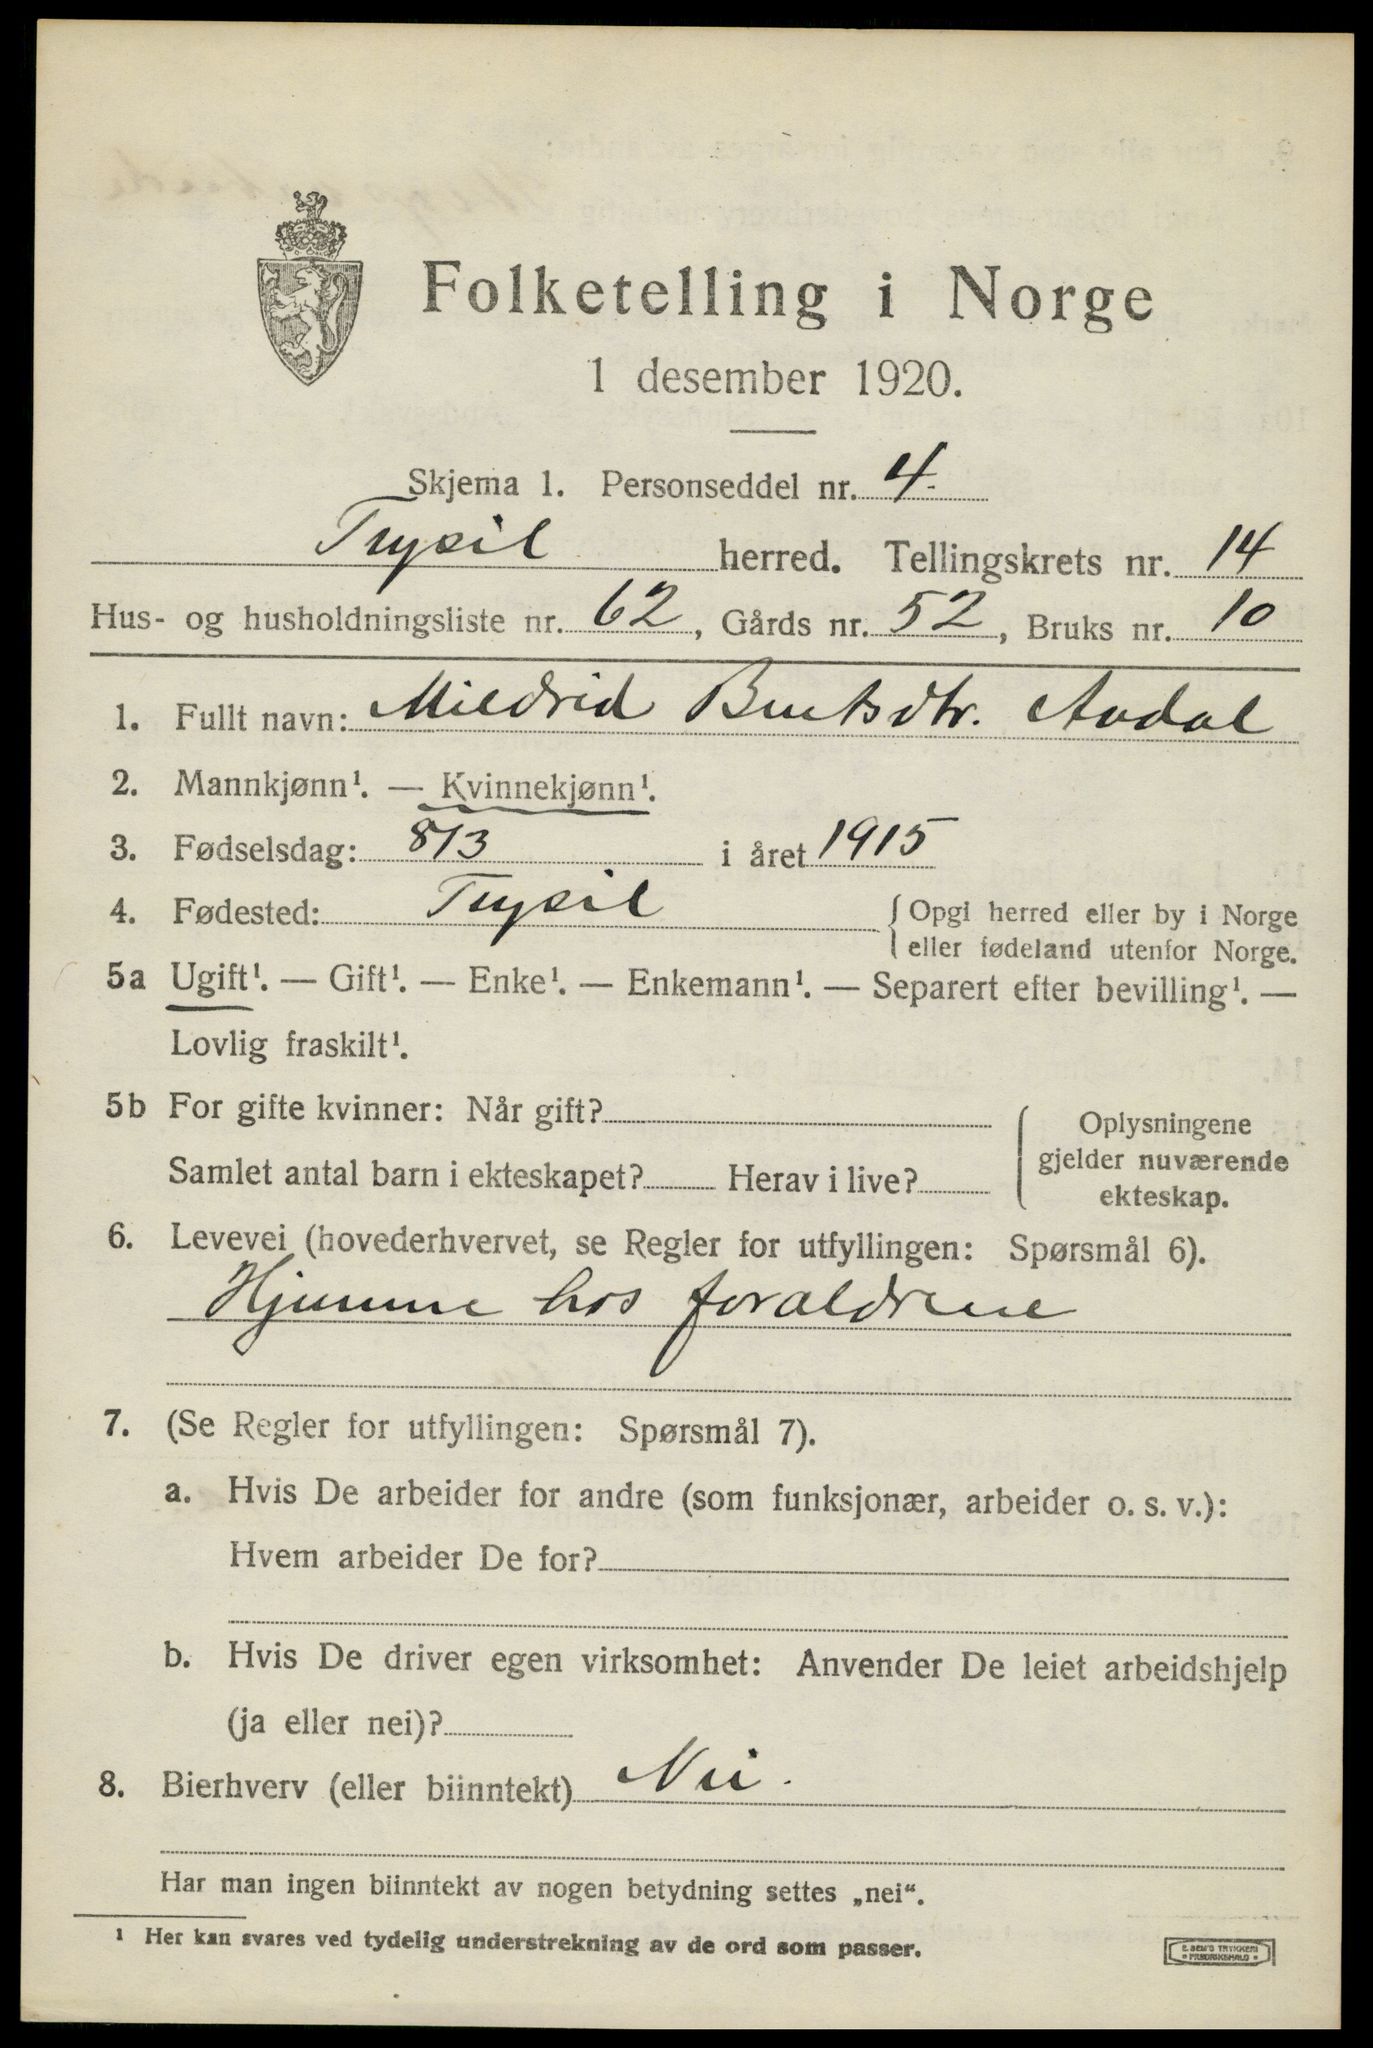 Folketelling i Norge
1 desember 1920.
Skjema 1. Personseddel nr. 4.
Trysil herred. Tellingskrets nr. 14
Hus- og husholdningsliste nr. 62, Gårds nr. 52, Bruks nr. 10
1. Fullt navn: Mildrid Berntsdtr. Avdal
2. Mannkjønn¹. — Kvinnekjønn¹.
3. Fødselsdag: 8/3 i året 1915
4. Fødested: Trysil {Opgi herred eller by i Norge
eller fødeland utenfor Norge.
5a Ugift¹. — Gift¹. — Enke¹. — Enkemann¹. — Separert efter bevilling¹. —
Lovlig fraskilt¹.
5b For gifte kvinner: Når gift?
Samlet antal barn i ekteskapet? Herav i live?
Oplysningene
gjelder nuværende
ekteskap.
6. Levevei (hovederhvervet, se Regler for utfyllingen: Spørsmål 6).
Hjemme hos forældrene
7. (Se Regler for utfyllingen: Spørsmål 7).
a. Hvis De arbeider for andre (som funksjonær, arbeider o. s. v.):
Hvem arbeider De for?
b. Hvis De driver egen virksomhet: Anvender De leiet arbeidshjelp
(ja eller nei)?
8. Bierhverv (eller biinntekt) Nei.
Har man ingen biinntekt av nogen betydning settes „nei“.
¹ Her kan svares ved tydelig understrekning av de ord som passer.
E. SEM'S TRYKKERI
FREDRIKSHALD